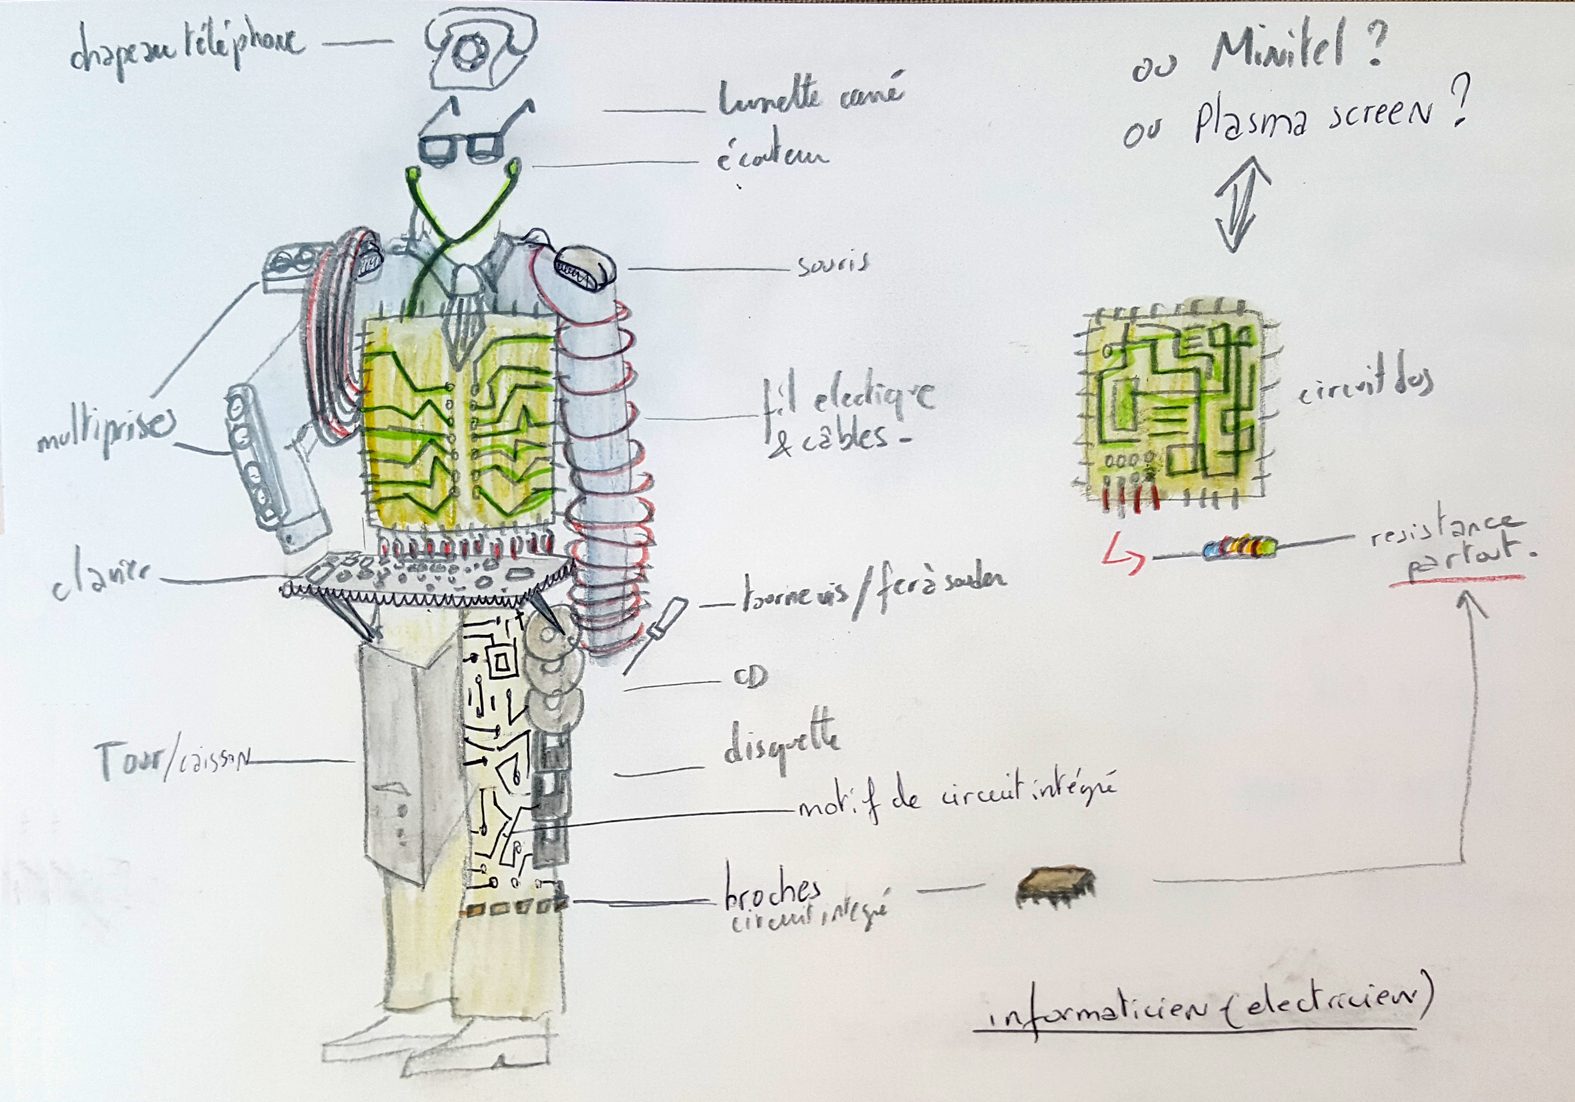 chapeau téléphone
ou Minitel ?
ou Plasma screen ?
lunette carré
écouteur
souris
circuit dos
multiprises
fil electique
& câbles -
resistance
partout.
clavier
tournevis / fer à souder
CD
Tour/caisson
disquette
motif de circuit intégré
broches
circuit integré
informaticien (electricien)